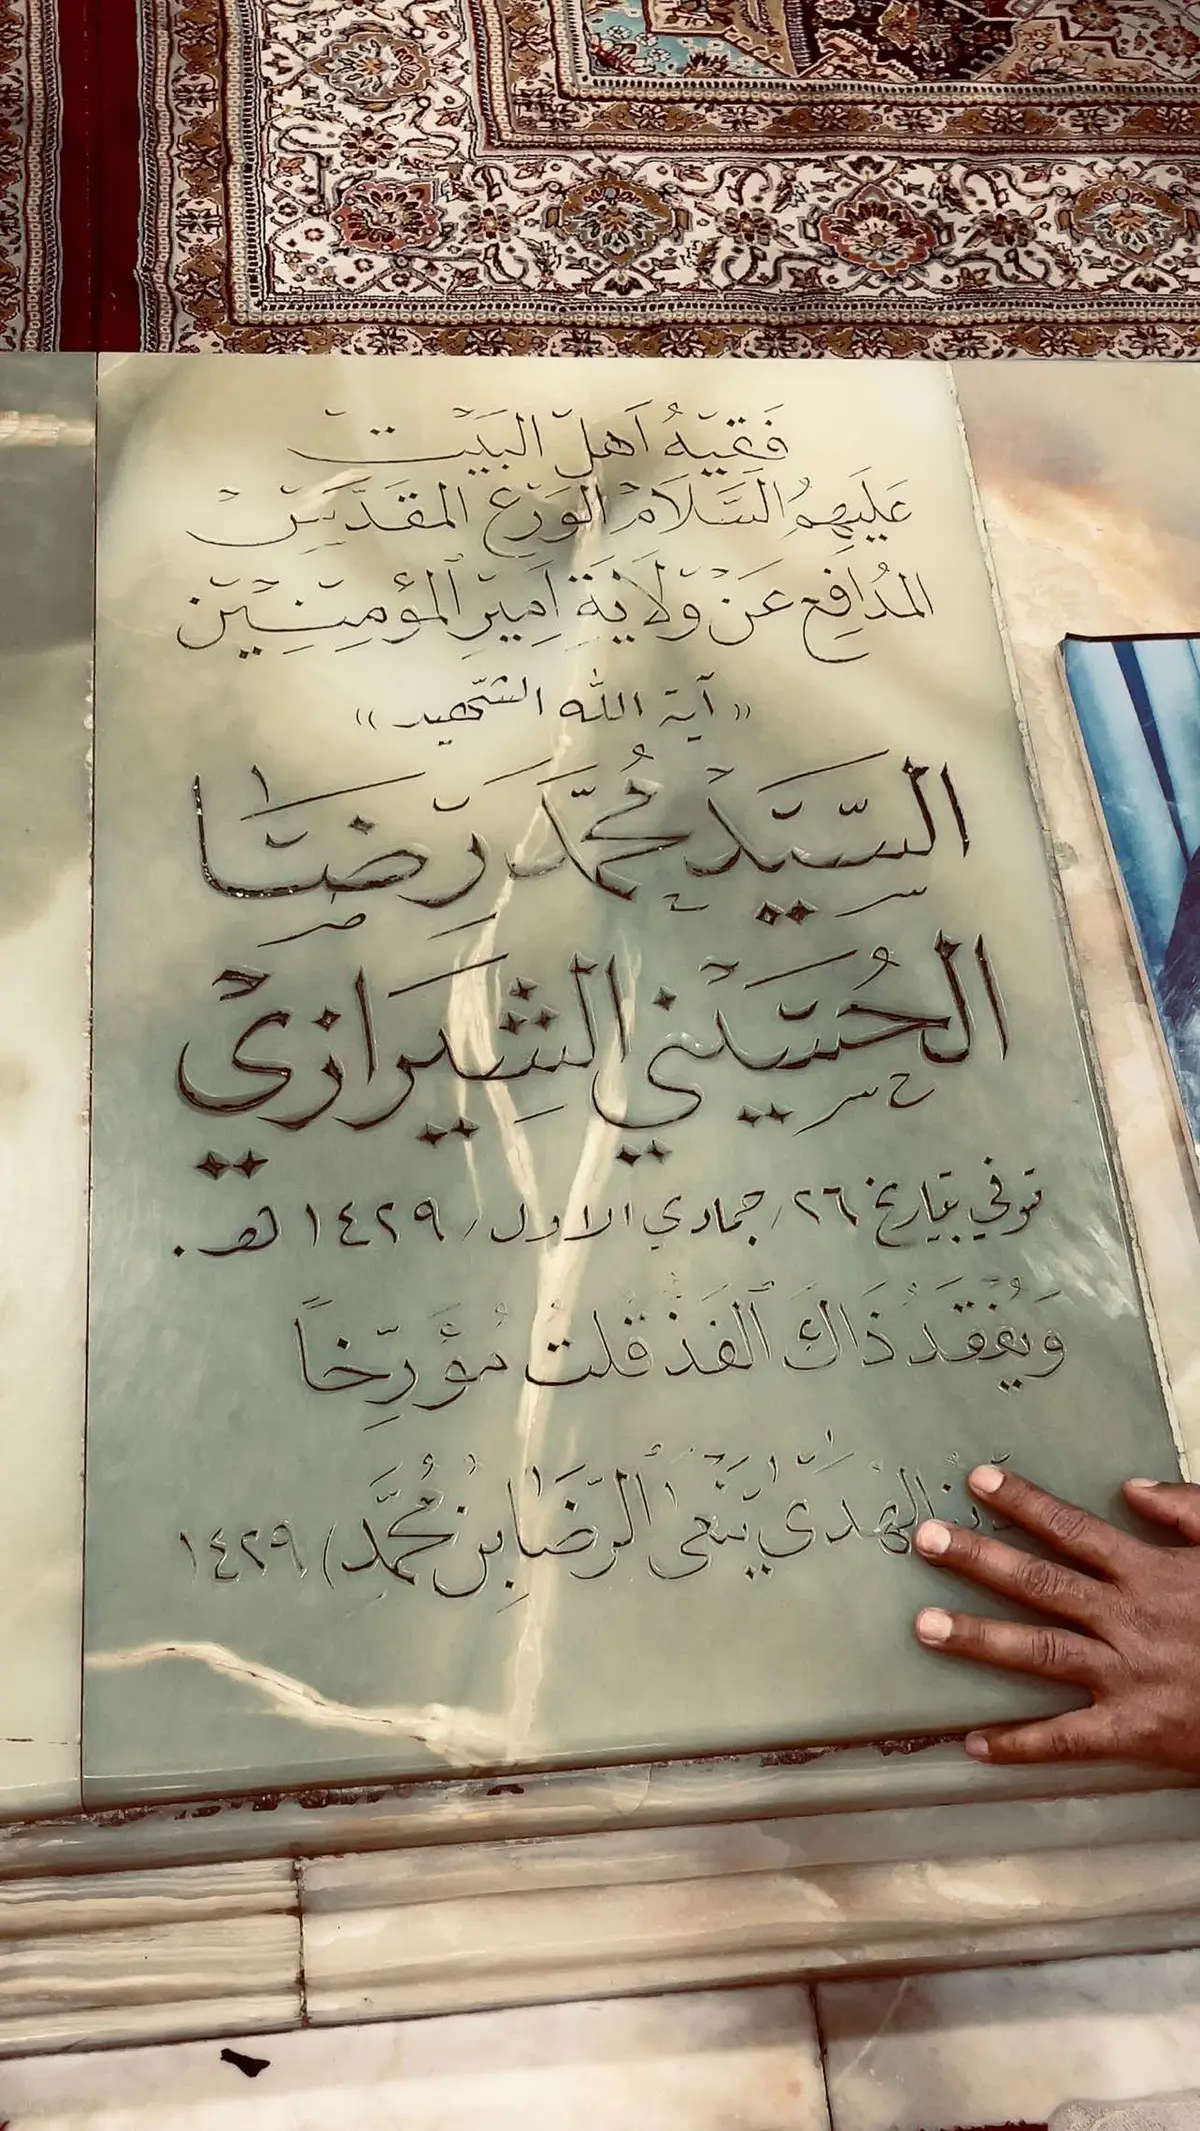 فَقِيهُ أَهلِ البَيْتِ
عَلَيهِمُ السَّلَامْ الوَرَعِ المُقَدَّسِ
المُدَافِعِ عَنْ وَلَايَةِ أَمِيرِ المُؤمِنِينْ
«آية الله الشهيد»
السَّيِّدْ مُحَمَّدْ رِضَا
الحُسَيْنِي الشِيرازيْ
توفي بتاريخ ٢٦/ جمادي الاول/ ١٤٢٩ هـ.
وَيُفْقَدُ ذَاكَ الفَذُ قُلتُ مُؤَرِّخاً
الهُدَى يَنْعَى الرِّضَا بنُ مُحَمَّدِ) ١٤٢٩